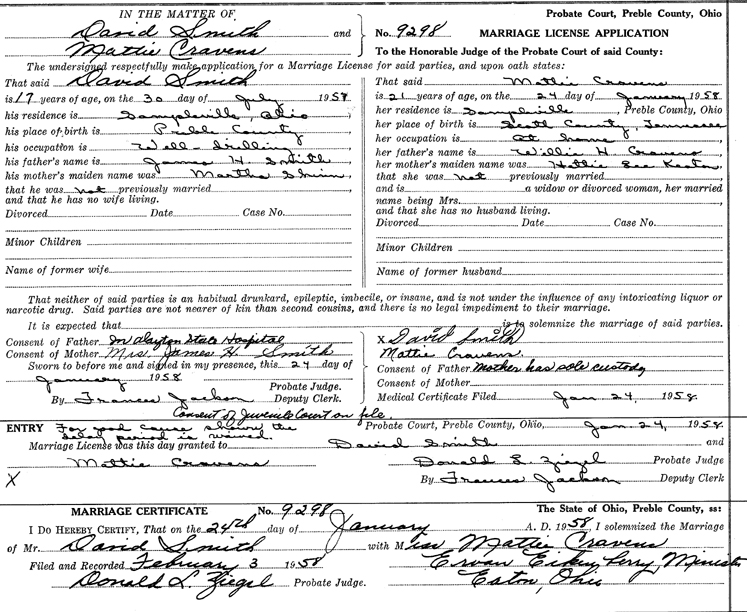 IN THE MATTER OF
David Smith and
Mattie Cravens
Probate Court, Preble County, Ohio
No. 9298 MARRIAGE LICENSE APPLICATION
To the Honorable Judge of the Probate Court of said County:
The undersigned respectfully make application for a Marriage License for said parties, and upon oath states:
That said David Smith
is 17 years of age, on the 30 day of July 1957
his residence is Ohio
his place of birth is Preble County
his occupation is Well-drilling
his father's name is James H. Smith
his mother's maiden name was Martha
that he was not previously married
and that he has no wife living.
Divorced Date Case No.
Minor Children
Name of former wife
That said Mattie Cravens
is 21 years of age, on the 24 day of January 1958
her residence is , Preble County, Ohio
her place of birth is Scott County, Tennessee
her occupation is at home
her father's name is Willie H. Cravens
her mother's maiden name was Hattie
that she was not previously married
and is a widow or divorced woman, her married
name being Mrs.
and that she has no husband living.
Divorced Date Case No.
Minor Children
Name of former husband
That neither of said parties is an habitual drunkard, epileptic, imbecile, or insane, and is not under the influence of any intoxicating liquor or
narcotic drug. Said parties are not nearer of kin than second cousins, and there is no legal impediment to their marriage.
It is expected that is to solemnize the marriage of said parties.
Consent of Father In Dayton State Hospital
Consent of Mother Mrs. James H. Smith
Sworn to before me and signed in my presence, this 24 day of
January 1958
Probate Judge.
By Frances Jackson Deputy Clerk.
X David Smith
Mattie Cravens
Consent of Father Mother has sole custody
Consent of Mother
Medical Certificate Filed Jan. 24, 1958
Consent of Juvenile Court on file.
ENTRY For good cause shown the
delay period is waived.
Probate Court, Preble County, Ohio, Jan. 24, 1958
Marriage License was this day granted to David Smith and
Mattie Cravens Donald L. Ziegel Probate Judge
X By Frances Jackson Deputy Clerk
MARRIAGE CERTIFICATE No. 9298 The State of Ohio, Preble County, ss:
I DO HEREBY CERTIFY, That on the 24th day of January A. D. 1958, I solemnized the Marriage
of Mr. David Smith with Miss Mattie Cravens
Filed and Recorded February 3 1958 Minister
Donald L. Ziegel Probate Judge. Eaton, Ohio